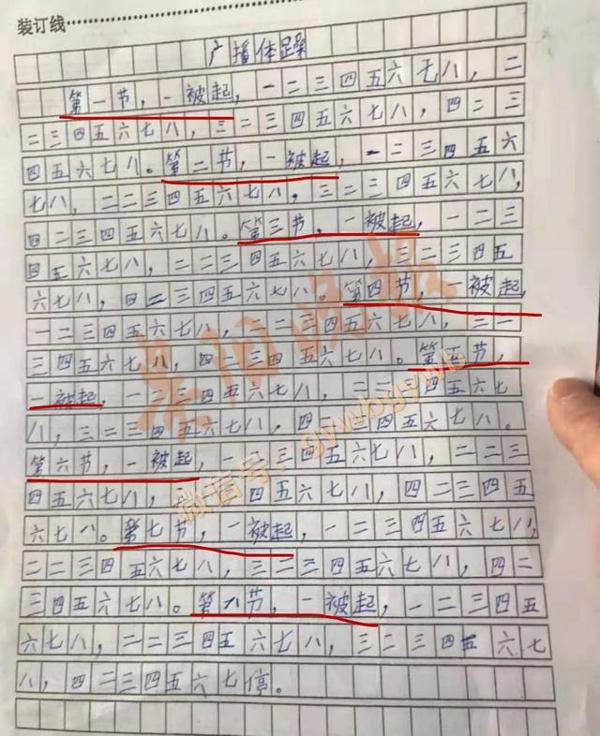 装订线
广播体躁
第一节，一被起，一二三四五六七八，二
二三四五六七八，三二三四五六七八，四二三
四五六七八。第二节，一被起，一二三四五六
七八，二二三四五六七八，三二三四五六七八，
四二三四五六七八。第三节，一被起，一二三
四五六七八，二二三四五六七八，三二三四五
六七八，四二三四五六七八。第四节，一被起，
一二三四五六七八，二二三四五六七八，三二
三四五六七八，四二三四五六七八。第五节，
一被起，一二三四五六七八，二二三四五六七
八，三二三四五六七八，四二三四五六七八。
第六节，一被起，一二三四五六七八，二二三
四五六七八，四五六七八，四二三四五
六七八。第七节，一被起，一二三四五六七八，
二二三四五六七八，三二三四五六七八，四二
三四五六七八。第八节，一被起，一二三四五
六七八，二二三四五六七八，三二三四五六七
八，四二三四五六七停。
阳晚报
微信号：gywbgywb